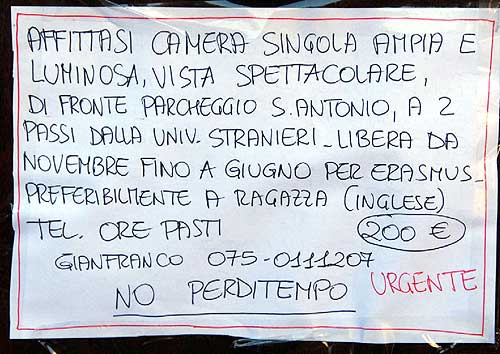 AFFITTASI CAMERA SINGOLA AMPIA E
LUMINOSA, VISTA SPETTACOLARE,
DI FRONTE PARCHEGGIO S. ANTONIO, A 2
PASSI DALLA UNIV. STRANIERI - LIBERA DA
NOVEMBRE FINO A GIUGNO PER ERASMUS -
PREFERIBILMENTE A RAGAZZA (INGLESE)
TEL. ORE PASTI 200 €
GIANFRANCO 075-0111207
URGENTE
NO PERDITEMPO